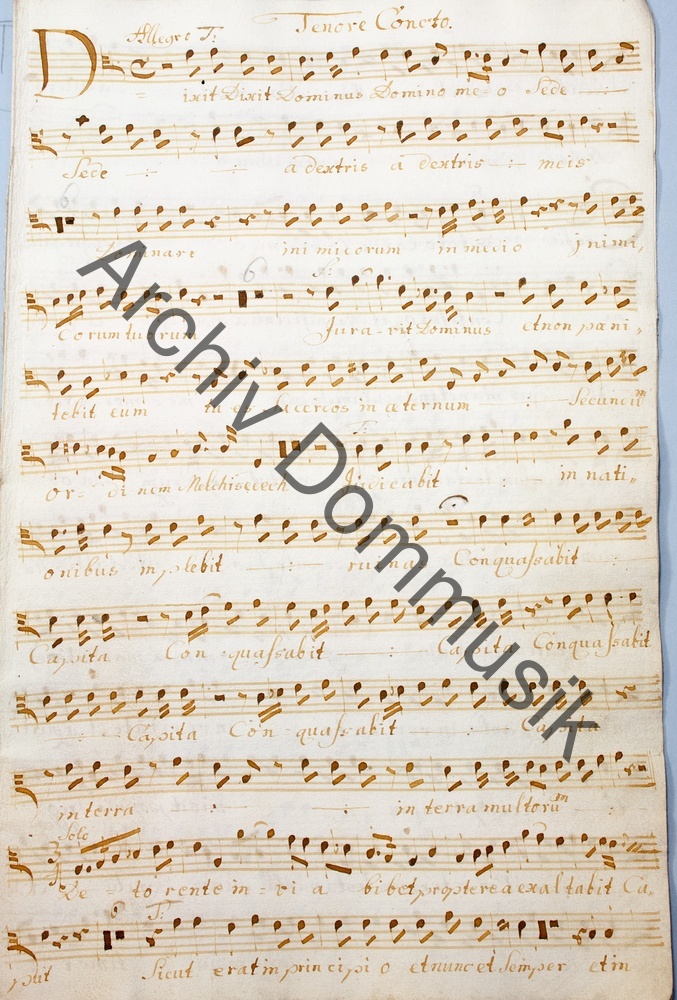 Tenore Concto.
Allegro T:
Dixit Dixit Dominus Domino me-o Sede —
Sede —:— —:— a dextris a dextris —:— meis
6
Dominare inimicorum in medio inimi,,
6
Corum tuorum Jura-vit Dominus et non pæni,,
tebit eum tu es Sacerdos in æternum —:— Secundũ
T:
or-di nem Melchisedech Judicabit —:— in nati,,
onibus implebit —:— ruinas Conquaſsabit —:—
Capita Con-quaſsabit —:— Capita Conquaſsabit
—:— Capita Con-quaſsabit —:— Capita
in terra —:— —:— in terra multorũ —:—
Solo
De-to rente in-vi a bibet propterea exaltabit Ca,
6 T:
put Sicut erat in principi o et nunc et Semper et in
Archiv Dommusik